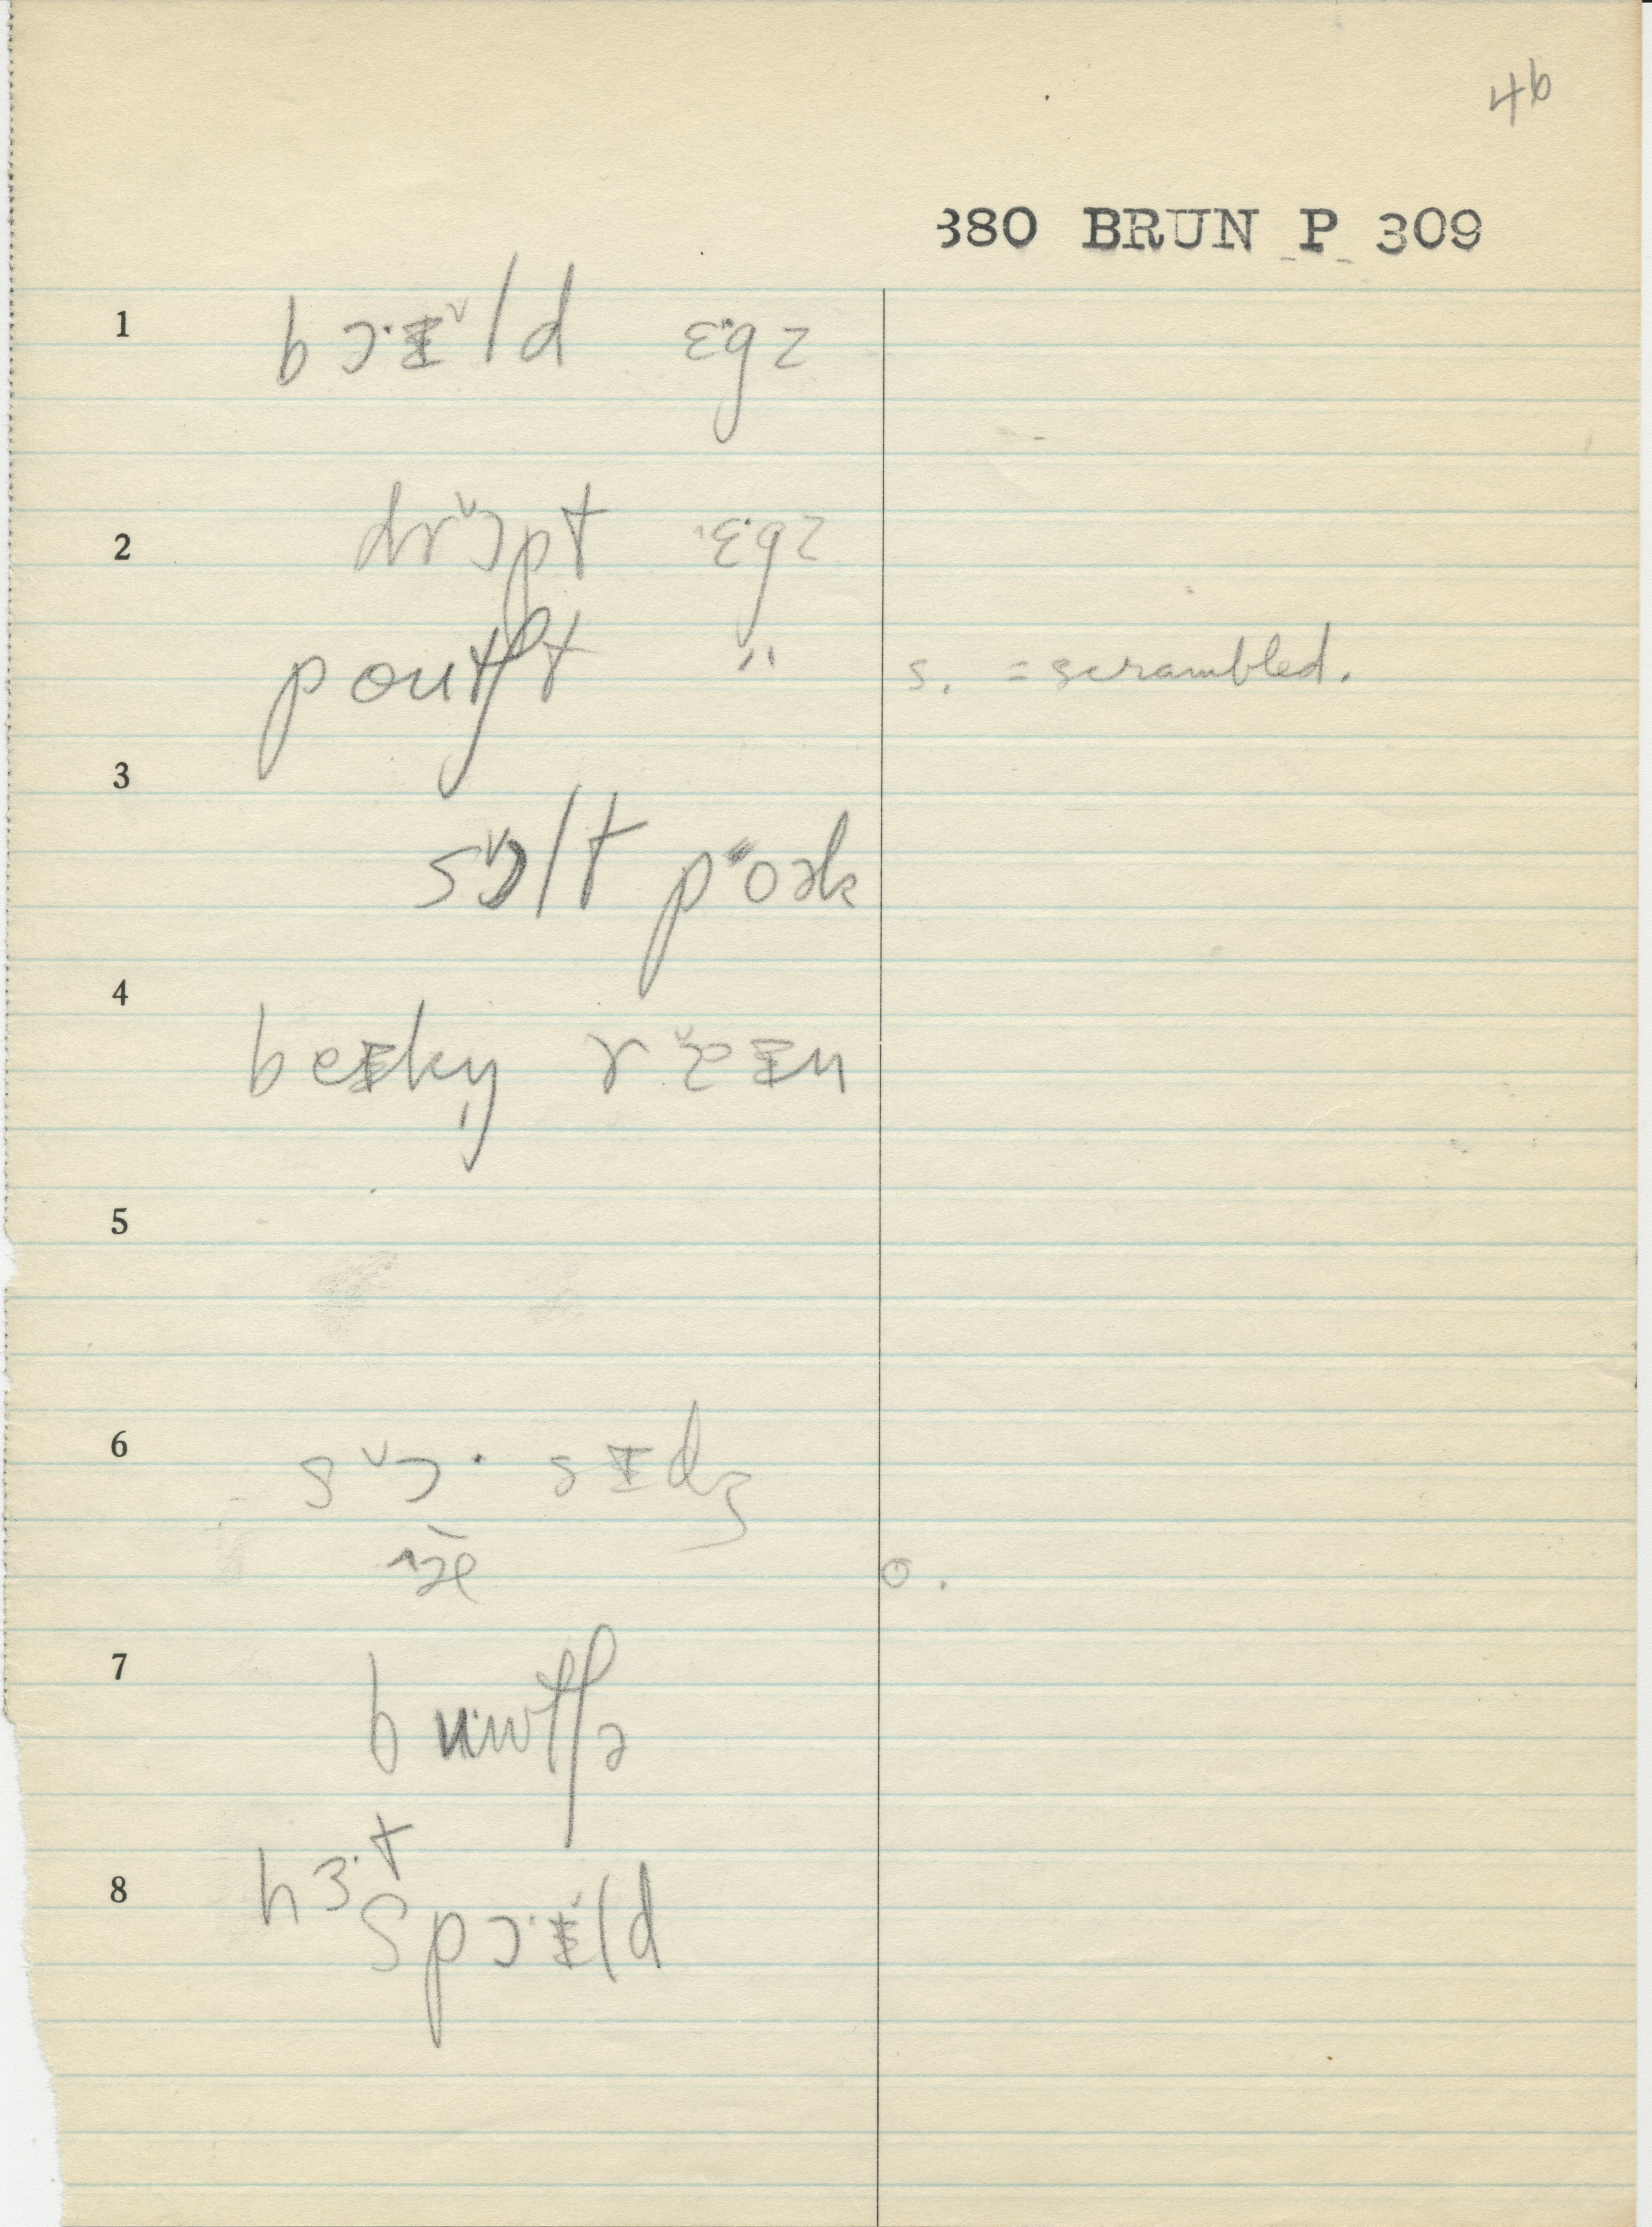 46
380 BRUN P 309
1 bɔ·ɪ̌ld ɛ·gz
2 drɔ̌pt ɛ·gz
poutʃt " s. = scrambled.
3
sɔ̌lt poək
4
beɪkn̩ ɤæ̌ɪn
5
6 sɔ̌· sɪdʒ
æ̃ o.
7 bʊwtʃə
hɜ·t
8 spɔ·ɪ̌ld